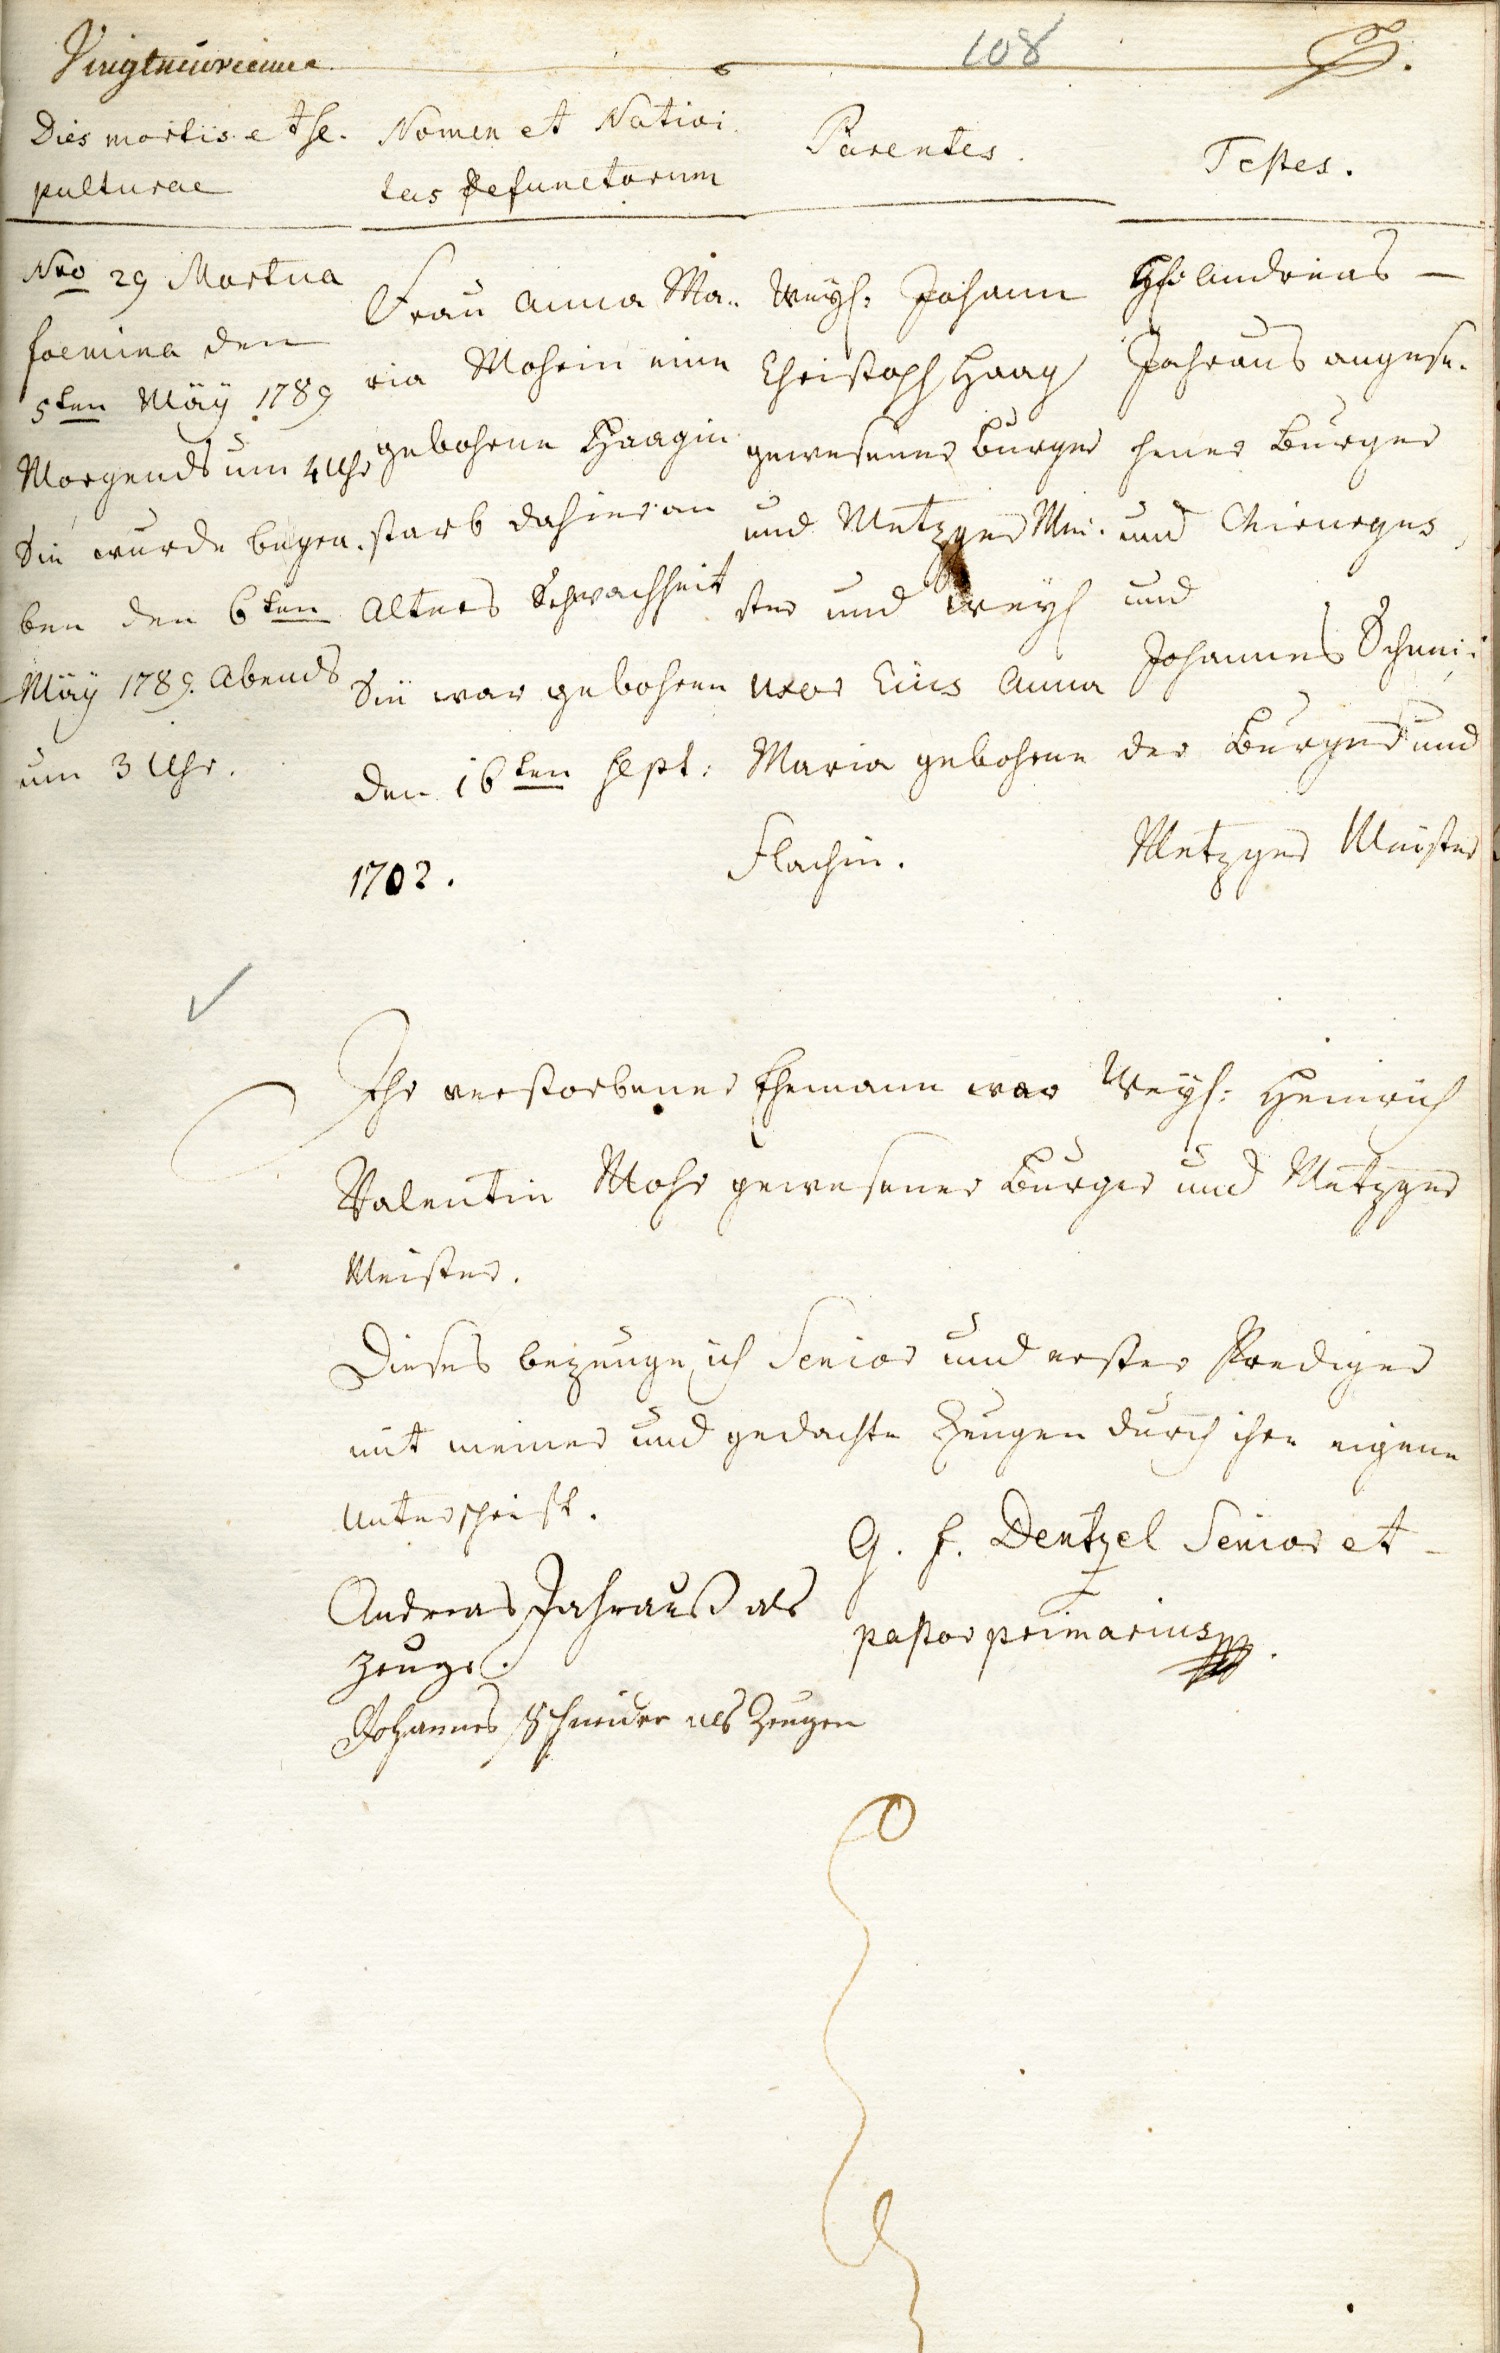 Vingtneuvieme
108
Dies mortis et se-
pulturae
Nro 29 Mortua
foemina den
5ten Mäÿ 1789
Morgends um 4 Uhr
Sie wurde begra-
ben den 6ten
Mäÿ 1789. Abends
um 3 Uhr.
Nomen et Nativi
tas defunctorum
Frau Anna Ma-
ria Mohrin eine
gebohrne Haagin
starb dahier an
Alters Schwachheit
Sie war gebohren
den 16ten Sept:
1702.
Parentes.
Weyl: Johann
Christoph Haag
gewesener Burger
und Metzger Mei-
ster und Weyl
uxor Eius Anna
Maria gebohrne
Flachin.
Testes.
Andreas —
Jahraus angese-
hener Burger
und Chirurgus,
und
Johannes Schnei-
der Burger und
Metzger Meister
Ihr verstorbener Ehemann war Weyl: Heinrich
Valentin Mohr gewesener Burger und Metzger
Meister.
Dieses bezeuge ich Senior und erster Prediger
mit meiner und gedachte Zeugen durch ihre eigene
Unterschrift.
G. F. Dentzel Senior et
pastor primarius.
Andreas Jahrauß als
Zeuge.
Johannes Schneider als Zeugen